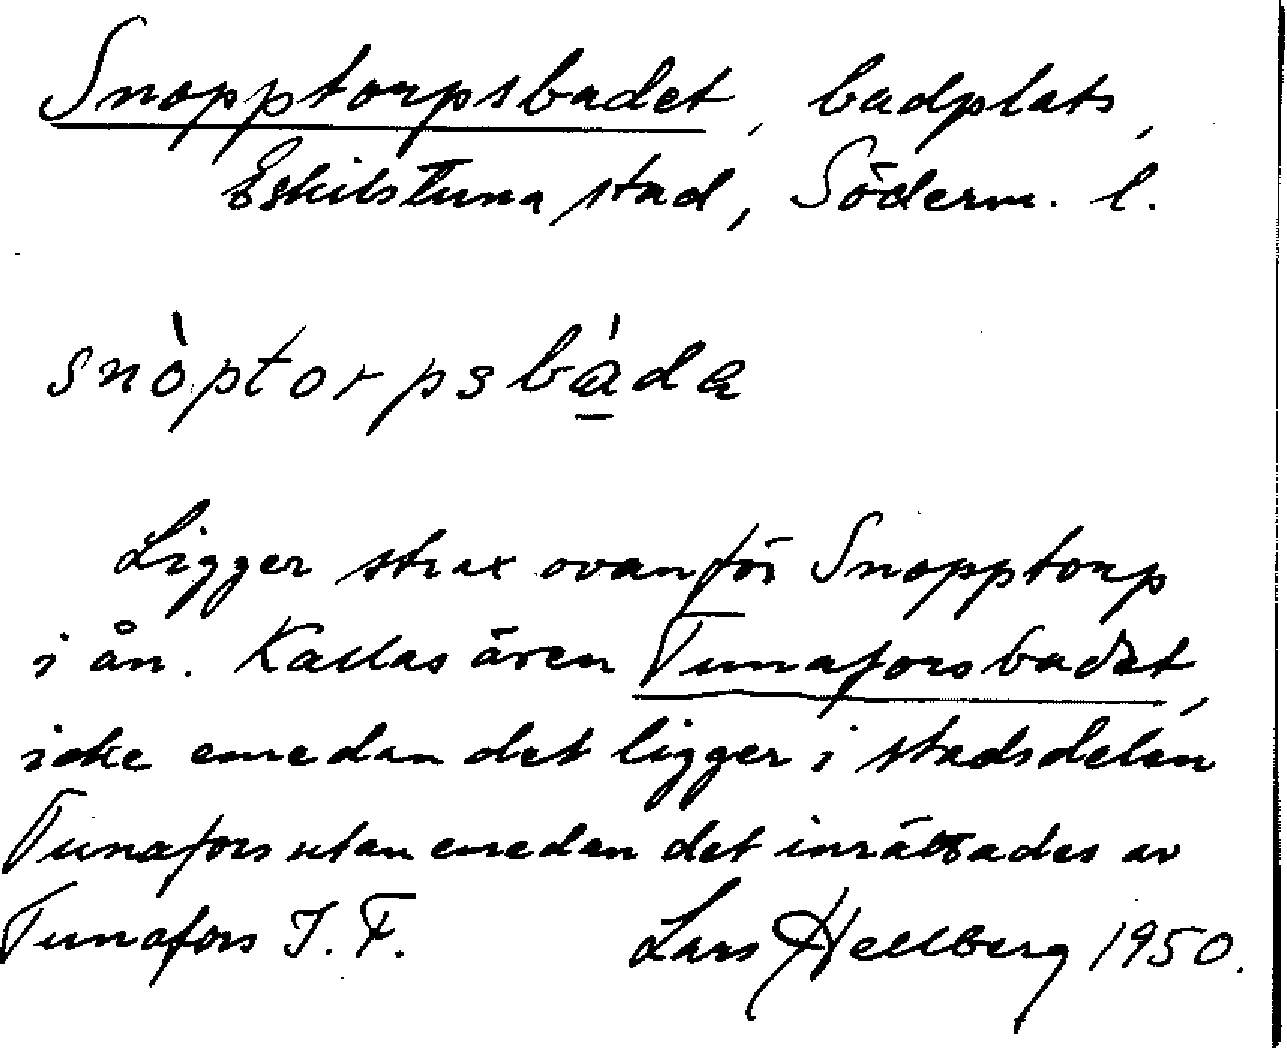 Snopptorpsbadet, badplats,
Eskilstuna stad, Söderm. l.
snòptorpsbáda
Ligger strax ovanför Snopptorp
i ån. Kallas även Tunaforsbadet,
icke emedan det ligger i stadsdelen
Tunafors utan emedan det inrättades av
Tunafors I. F. Lars Hellberg 1950.